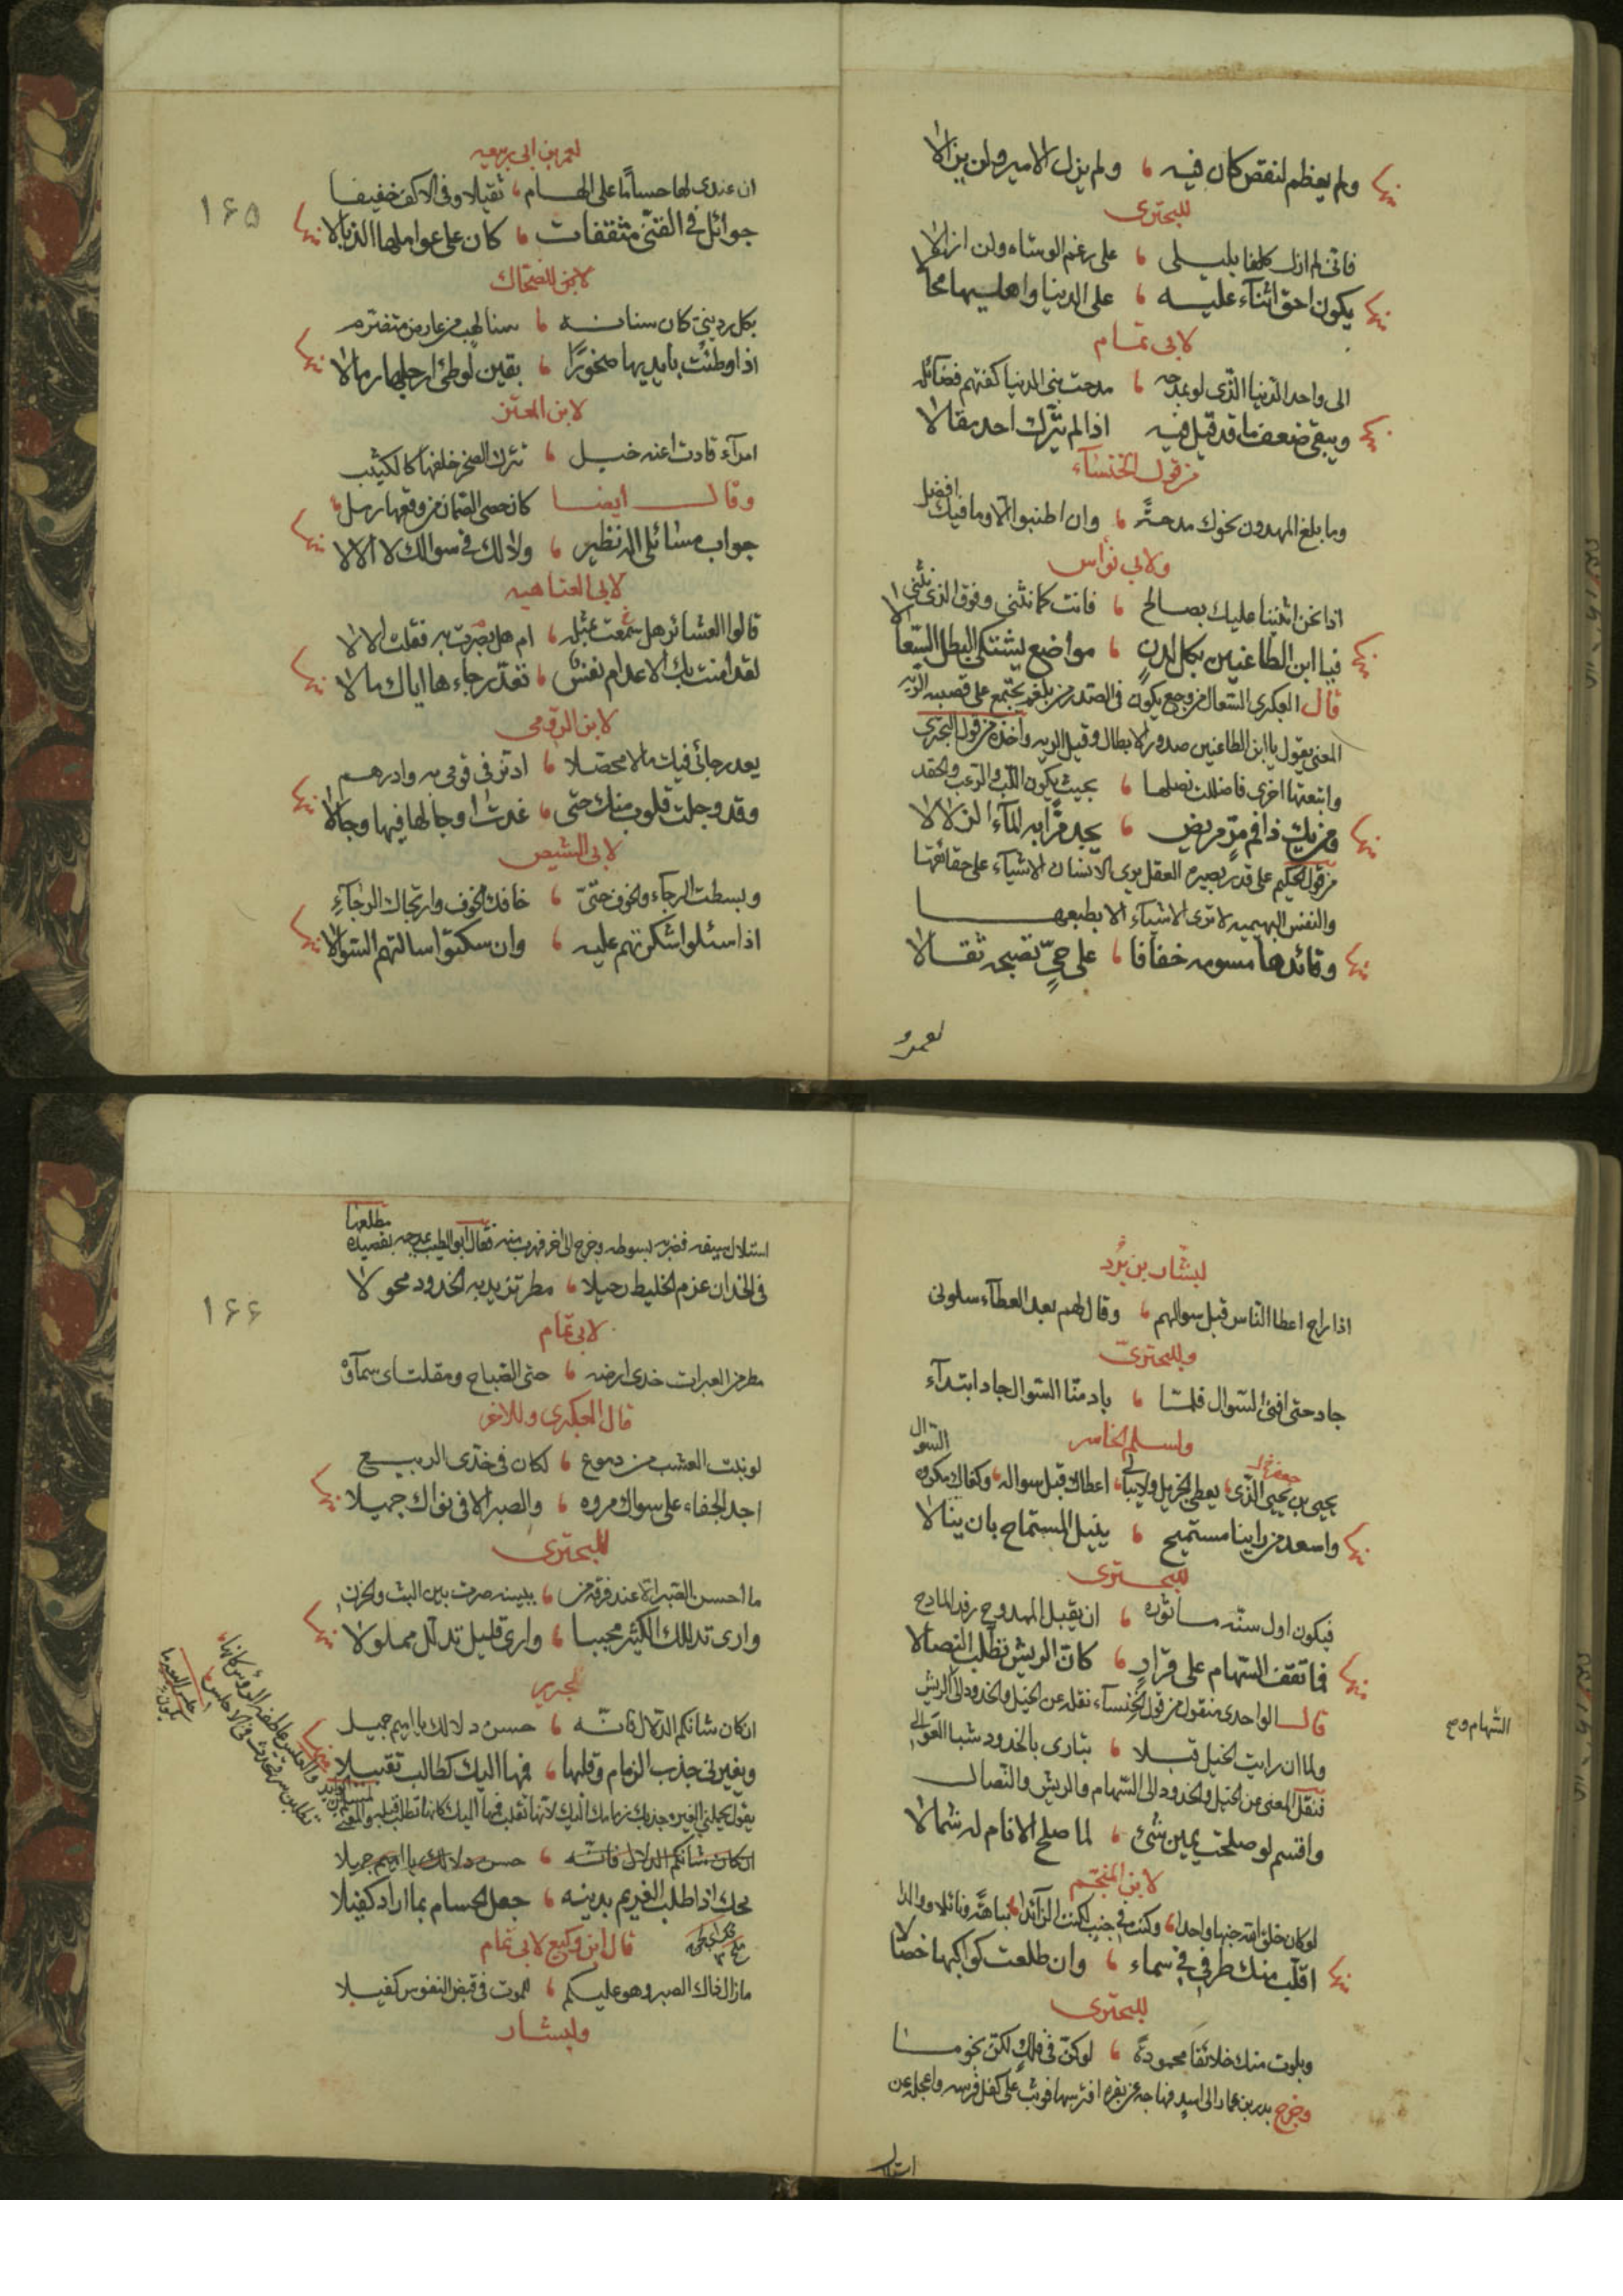 ولم يعظم لنقص كان فيه ، ولم يزل الامير ولن يزالا
للبحترى
فانى لم ازل كلفا بليلى ، على رغم الوشاه ولن ازالا
يكون احق اثناء عليه ، على الدنيا واهليها محالا
لابى تمام
الى واحد الدنيا الذى لو مدحته ، مدحت بنى الدنيا كفتهم فضائله
ويبقى ضعف ما قد قيل فيه اذا لم يترك احد مقالا
من قول الخنساء
وما بلغ المهدون نحوك مدحة ، وان اطنبوا الا وما فيك افضل
ولابى نواس
اذا نحن اثنينا عليك بصالح ، فانت كما نثنى وفوق الذى نثنى
فيا ابن الطاعنين بكل لدن ، مواضع يشتكى البطل السعالا
قال العكبرى السعال من وجع يكون فى الصدر من بلغم يجتمع على قصبه الريه
المعنى يقول يا ابن الطاعنين صدور الابطال وقيل الريه واخذه من قول البحترى
واتبعتها اخرى فاضللت نصلها ، بحيث يكون اللب والرعب والحقد
ومن يك ذا فم مر مريض ، يجد مرا به الماء الزلالا
من قول الحكيم على قدر بصيره العقل يرى الانسان الاشياء على حقائقها
والنفس البهيميه لا ترى الاشياء الا بطبعها
وقائدها مسومه خفافا ، على حى تصبحه ثقالا
لعمرو
١٦٥
لعمر بن ابى ربيعه
ان عندى لها حساما على الهام ، ثقيلا وفى الاكف خفيفا
جوائل فى القنى مثقفات ، كان على عواملها الذبالا
لابن الضحاك
بكل ردينى كان سنانه ، سنا لهب من عارض متضرم
اذا وطئت بايديها صخورا ، يفين لوطئ ارجلها رمالا
لابن المعتز
قادت اعنه خيل ، تترك الصخر خلفها كالكثيب
وقال ايضا كان حصى الصمان من وقعها رمل
جواب مسائلى اله نظير ، ولا لك فى سوالك لا الا لا
لابى العتاهيه
قالوا العشائر هل سمعت بمثله ، ام هل بصرت به فقلت الا لا
لقد امنت بك الاعدام نفس ، تعد رجاءها اياك مالا
لابن الرومى
يعد رجائى فيك مالا محصلا ،
وقد وجلت قلوب منك حتى ، غدت اوجالها فيها وجالا
لابى الشيص
وبسطت الرجاء والخوف حتى ، خافك الخوف وارتجاك الرجاء
اذا سئلوا شكرتهم عليه ، وان سكتوا سالتهم السوالا
لبشار بن برد
اذا راح اعطا الناس قبل سوالهم ، وقال لهم بعد العطاء سلونى
وللبحترى
جاد حتى افنى السوال فلما ، باد منا السوال جاد ابتداء
ولسلم الخاسر
يحيى بن يحيى الذى يعطى الجزيل ولا يبالى ، اعطاك قبل سواله ، وكفاك مكروه السوال
واسعد من راينا مستميح ، ينيل المستماح بان ينالا
للبحترى
فيكون اول سنه ماثوره ، ان يقبل الممدوح رفد المادح
فما تقف السهام على قرار ، كان الريش تطلب النصالا
قال الواحدى منقول من قول الخنساء نقله عن الخيل والخدود الى الريش
ولما ان رايت الخيل قبلا ، تبارى بالخدود شبا العوالى
فنقل المعنى من الخيل والخدود الى السهام والريش والنصال
السهام وح
واقسم لو صلحت يمين شئ ، لما صلح الانام له شمالا
لابن المنجم
اقلب منك طرفى فى سماء ، وان طلعت كواكبها خصالا
للبحترى
وبلوت منك خلائقا محموده ، لو كن فى فلك لكن نجوما
وخرج بدر بن عمار الى اسد فهاجه عن بقره افترسها فوثب على كفل فرسه واعجله عن
استلال
١٦٦
استلال سيفه فضربه بسوطه وخرج الى اخر فهرب منه فقال ابو الطيب يمدحه بقصيده مطلعها
فى الخد ان عزم الخليط رحيلا ، مطر تزيد به الخدود محولا
لابى تمام
مطر من العبرات خدى ارضه ، حتى الصباح ومقلتاى سماؤه
قال العكبرى وللاخر
لو نبت العشب من دموع ، لكان فى خدى الربيع
اجد الجفاء على سواك مروه ، والصبر الا فى نواك جميلا
للبحترى
ما احسن الصبر الا عند فرقه من ، ببينه صرت بين البث والحزن
وارى تدللك الكثير محببا ، وارى قليل تدلل مملولا
لجرير
ان كان شانكم الدلال فانه ، حسن دلالك يا اميم جميل
ويغيرنى جذب الزمام وقلبها ، فمها اليك كطالب تقبيلا
ان كان شانكم الدلال فانه ، حسن دلالك يا اميم جميلا
محك اذا طلب الغريم بدينه ، جعل الحسام بما اراد كفيلا
قال ابن وكيع لابى تمام
مازال ذاك الصبر وهو عليكم ، الموت فى قبض النفوس كفيلا
ولبشار